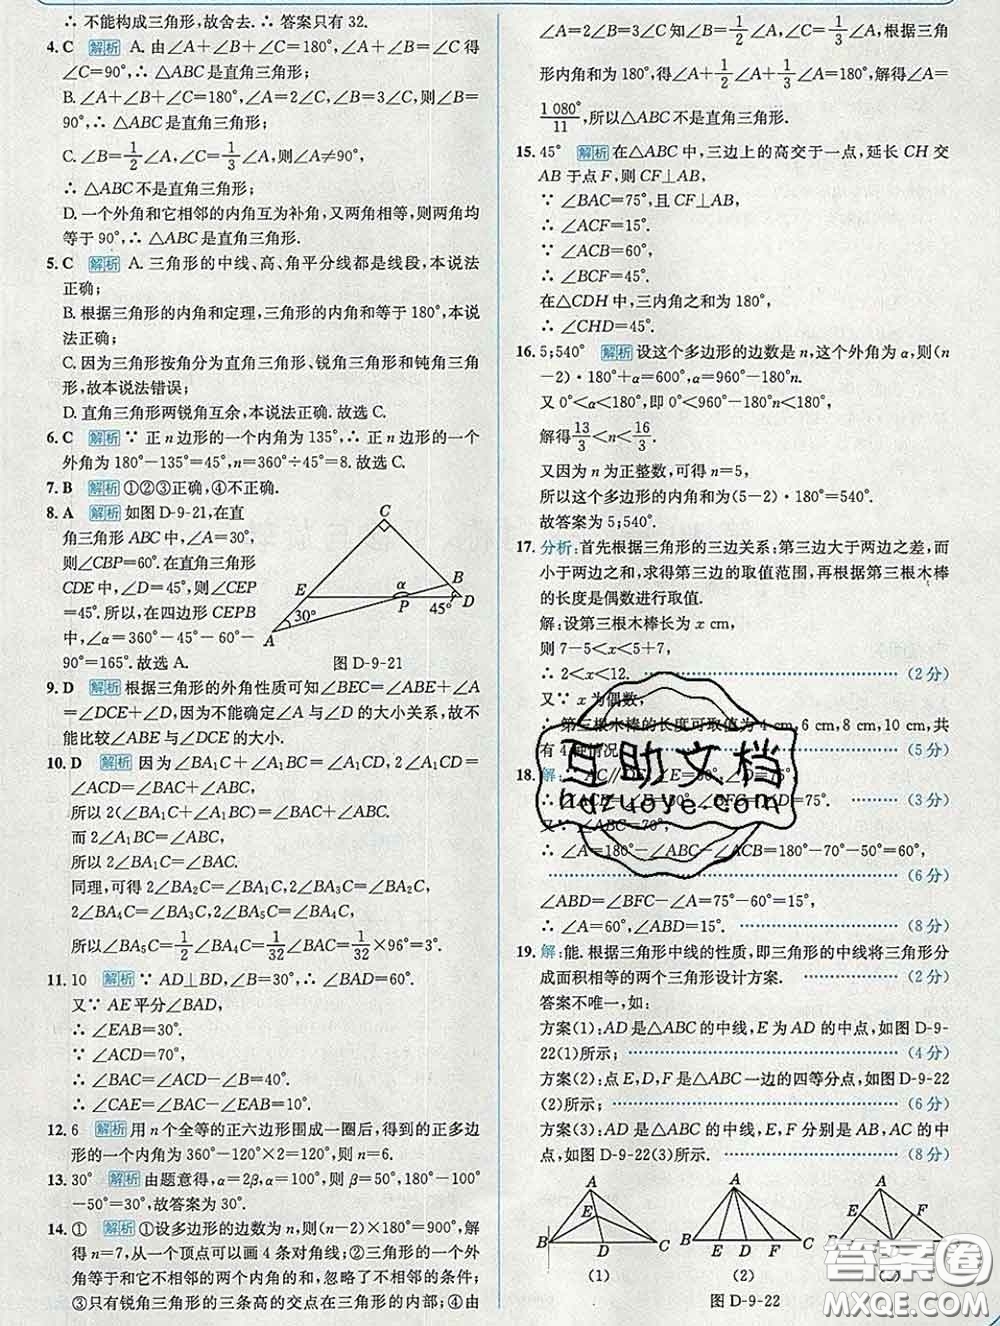 ∴ 不能构成三角形,故舍去.∴ 答案只有 32.
4. C 解析 A. 由∠A+∠B+∠C=180°,∠A+∠B=∠C 得
∠C=90°,∴ △ABC 是直角三角形;
B. ∠A+∠B+∠C=180°,∠A=2∠C,∠B=3∠C,则∠B=
90°,∴ △ABC 是直角三角形;
C. ∠B=1/2∠A,∠C=1/3∠A,则∠A≠90°,
∴ △ABC 不是直角三角形;
D. 一个外角和它相邻的内角互为补角,又两角相等,则两角均
等于 90°,∴ △ABC 是直角三角形.
5. C 解析 A. 三角形的中线、高、角平分线都是线段,本说法
正确;
B. 根据三角形的内角和定理,三角形的内角和等于 180°,本说
法正确;
C. 因为三角形按角分为直角三角形、锐角三角形和钝角三角
形,故本说法错误;
D. 直角三角形两锐角互余,本说法正确. 故选 C.
6. C 解析 ∵ 正 n 边形的一个内角为 135°,∴ 正 n 边形的一个
外角为 180°-135°=45°,n=360°÷45°=8. 故选 C.
7. B 解析 ①②③正确,④不正确.
8. A 解析 如图 D-9-21,在直
角三角形 ABC 中,∠A=30°,
则∠CBP=60°. 在直角三角形
CDE 中,∠D=45°,则∠CED
=45°. 所以,在四边形 CEPB
中,∠α=360°-45°-60°-
90°=165°. 故选 A.
C
E
α
B
30°
P
45°
D
A
图 D-9-21
9. D 解析 根据三角形的外角性质可知∠BEC=∠ABE+∠A
=∠DCE+∠D,因为不能确定∠A 与∠D 的大小关系,故不
能比较∠ABE 与∠DCE 的大小.
10. D 解析 因为∠BA₁C+∠A₁BC=∠A₁CD,2∠A₁CD
=∠ACD=∠BAC+∠ABC,
所以 2(∠BA₁C+∠A₁BC)=∠BAC+∠ABC.
而 2∠A₁BC=∠ABC,
所以 2∠BA₁C=∠BAC.
同理,可得 2∠BA₂C=∠BA₁C,2∠BA₃C=∠BA₂C,
2∠BA₄C=∠BA₃C,2∠BA₅C=∠BA₄C,
所以∠BA₅C=1/2∠BA₄C=1/32∠BAC=1/32×96°=3°.
11. 10 解析 ∵ AD⊥BD,∠B=30°,∴ ∠BAD=60°.
又∵ AE 平分∠BAD,
∴ ∠EAB=30°.
∵ ∠ACD=70°,
∴ ∠BAC=∠ACD-∠B=40°.
∴ ∠CAE=∠BAC-∠BAE=10°.
12. 6 解析 用 n 个全等的正六边形围成一圈后,得到的正多边
形的一个内角为 360°-120°×2=120°,则 n=6.
13. 30° 解析 由题意得,α=2β,α=100°,则 β=50°,180°-100°
-50°=30°,故答案为 30°.
14. ① 解析 ①设多边形的边数为 n,则(n-2)×180°=900°,解
得 n=7,从一个顶点可以画 4 条对角线;②三角形的一个外
角等于和它不相邻的两个内角的和,忽略了不相邻的条件;
③只有锐角三角形的三条高的交点在三角形的内部;④由
∠A=2∠B=3∠C 知∠B=1/2∠A,∠C=1/3∠A,根据三角
形内角和为 180°,得∠A+1/2∠A+1/3∠A=180°,解得∠A=
1 080°/11,所以△ABC 不是直角三角形.
15. 45° 解析 在△ABC 中,三边上的高交于一点,延长 CH 交
AB 于点 F,则 CF⊥AB,
∵ ∠BAC=75°,且 CF⊥AB,
∴ ∠ACF=15°.
∵ ∠ACB=60°,
∴ ∠BCF=45°.
在△CDH 中,三内角之和为 180°,
∴ ∠CHD=45°.
16. 5;540° 解析 设这个多边形的边数是 n,这个外角为 α,则(n
-2)·180°+α=600°,α=960°-180°n.
又 0°<α<180°,即 0°<960°-180°n<180°,
解得13/3<n<16/3.
又因为 n 为正整数,可得 n=5,
所以这个多边形的内角和为(5-2)·180°=540°.
故答案为 5;540°.
17. 分析:首先根据三角形的三边关系:第三边大于两边之差,而
小于两边之和,求得第三边的取值范围,再根据第三根木棒
的长度是偶数进行取值.
解:设第三根木棒长为 x cm,
则 7-5<x<5+7,
∴ 2<x<12. (2 分)
又∵ x 为偶数,
∴ 第三根木棒的长度可取值为 4 cm,6 cm,8 cm,10 cm,共
有 4 种情况. (5 分)
18. 解:∵ AC∥DE,∠E=50°,∠D=75°,
∴ ∠ACB=∠E=50°,∠BFC=∠D=75°. (3 分)
又∵ ∠ABC=70°,
∴ ∠A=180°-∠ABC-∠ACB=180°-70°-50°=60°,
(6 分)
∠ABD=∠BFC-∠A=75°-60°=15°.
∴ ∠A=60°,∠ABD=15°. (8 分)
19. 解:能. 根据三角形中线的性质,即三角形的中线将三角形分
成面积相等的两个三角形设计方案. (2 分)
答案不唯一,如:
方案(1):AD 是△ABC 的中线,E 为 AD 的中点,如图 D-9-
22(1)所示; (4 分)
方案(2):点 E,D,F 是△ABC 一边的四等分点,如图 D-9-22
(2)所示; (6 分)
方案(3):AD 是△ABC 的中线,E,F 分别是 AB,AC 的中
点,如图 D-9-22(3)所示. (8 分)
A A A
E E F
B D C B E D F C B
(1) (2)
图 D-9-22
互助文档
huzuoye.com
答案圈
MXQE.COM